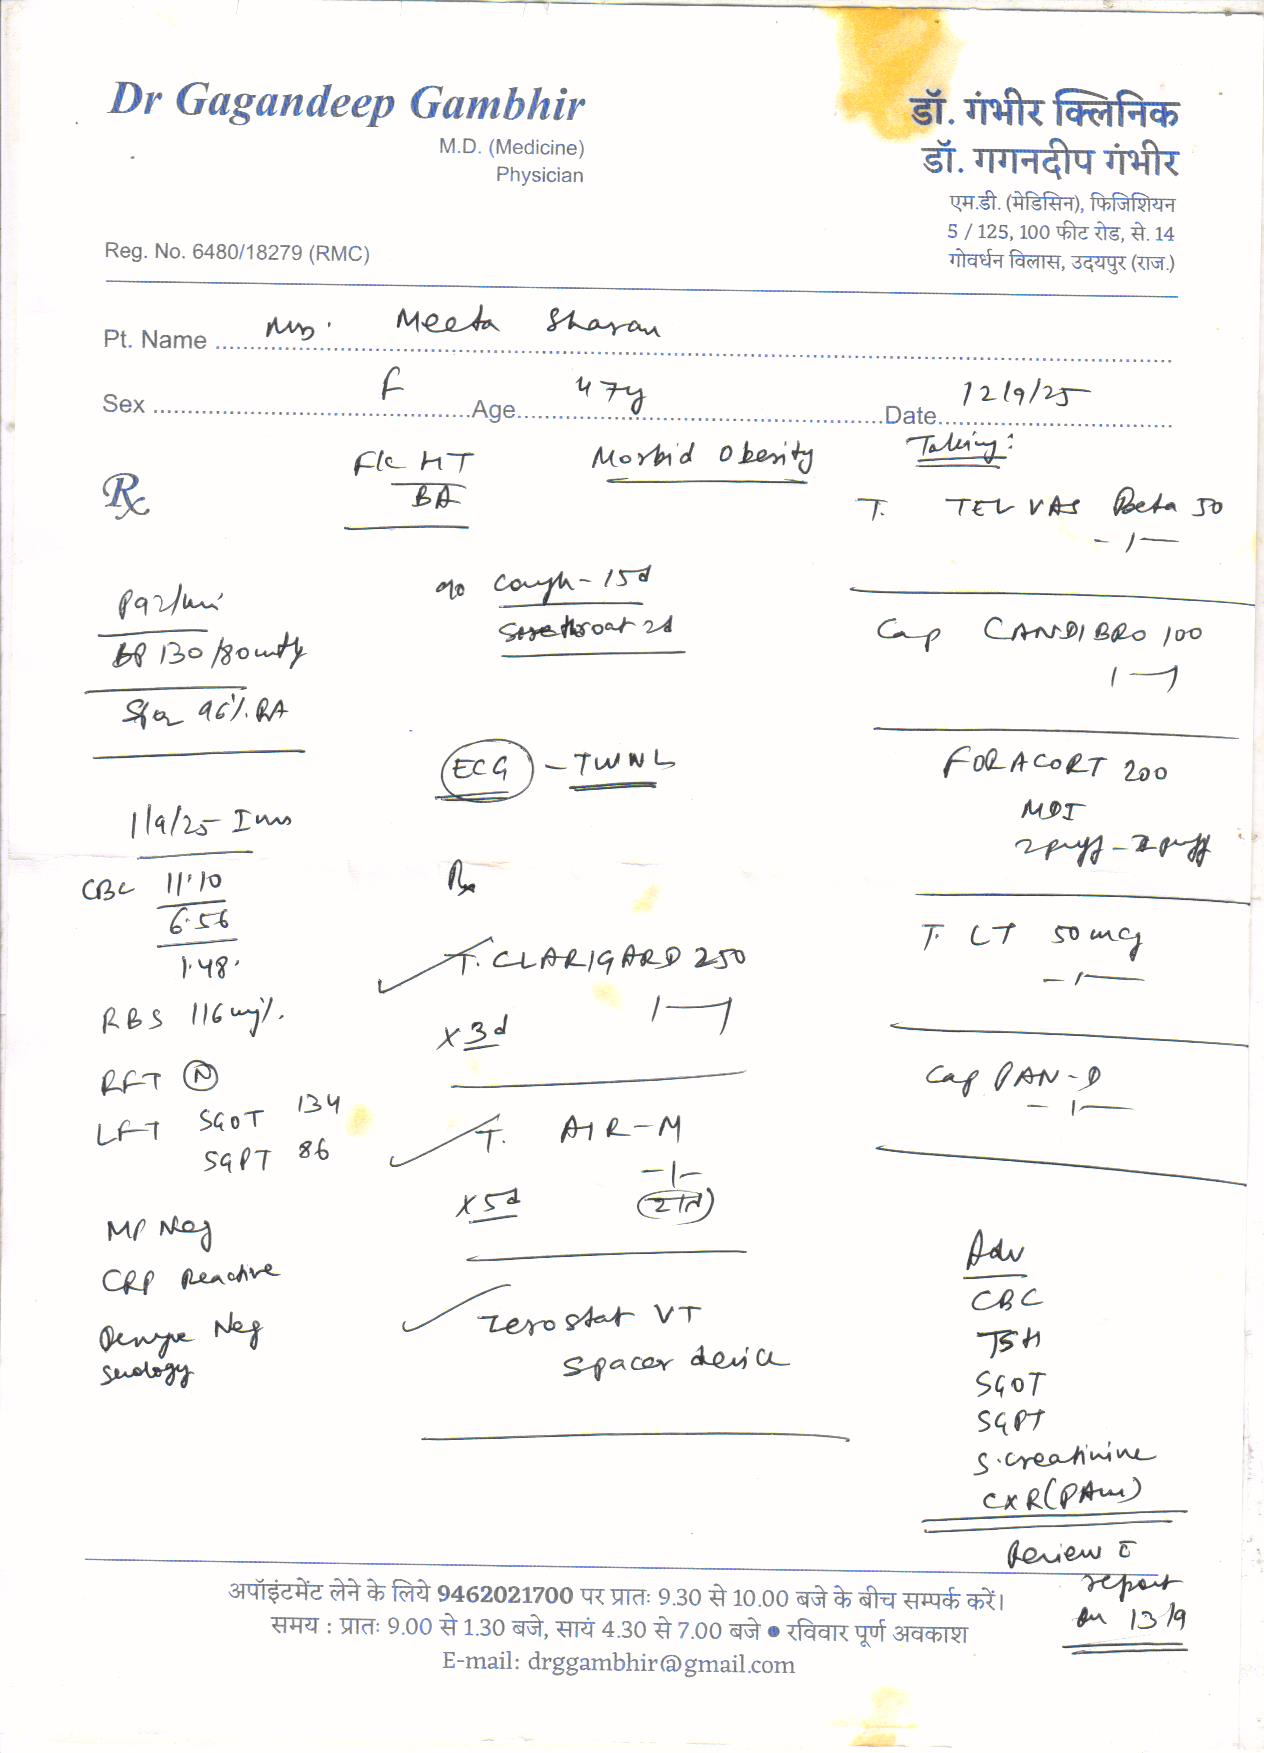 Dr Gagandeep Gambhir
M.D. (Medicine)
Physician
Reg. No. 6480/18279 (RMC)
डॉ. गंभीर क्लिनिक
डॉ. गगनदीप गंभीर
एम.डी. (मेडिसिन), फिजिशियन
5 / 125, 100 फीट रोड, से. 14
गोवर्धन विलास, उदयपुर (राज.)
Pt. Name Mrs. Meeta Sharan
Sex F Age 47y Date 12/9/25
Rx
F/c HT
BA
Morbid Obesity
P 92/min
BP 130/80 mmHg
SpO2 96% RA
11/9/25 - Inv
CBC 11.10
6.56
1.48
RBS 116 mg%.
RFT (N)
LFT SGOT 134
SGPT 86
MP Neg
CRP Reactive
Dengue Neg
Serology
c/o Cough - 15d
Sore throat 2d
ECG - TWNL
Rx
T. CLARIGARD 250
1—1
x 3d
T. AIR-M
-1-
x 5d (रात)
Zerostat VT
Spacer device
Taking:
T. TELVAS Beta 50
- 1 —
Cap CANDIBRO 100
1 — 1
FORACORT 200
MDI
2 puff - 2 puff
T. LT 50 mcg
- 1 —
Cap PAN-D
- 1 —
Adv
CBC
TSH
SGOT
SGPT
S. creatinine
CXR (PA view)
Review c̄
report
on 13/9
अपॉइंटमेंट लेने के लिये 9462021700 पर प्रातः 9.30 से 10.00 बजे के बीच सम्पर्क करें।
समय : प्रातः 9.00 से 1.30 बजे, सायं 4.30 से 7.00 बजे ● रविवार पूर्ण अवकाश
E-mail: drggambhir@gmail.com